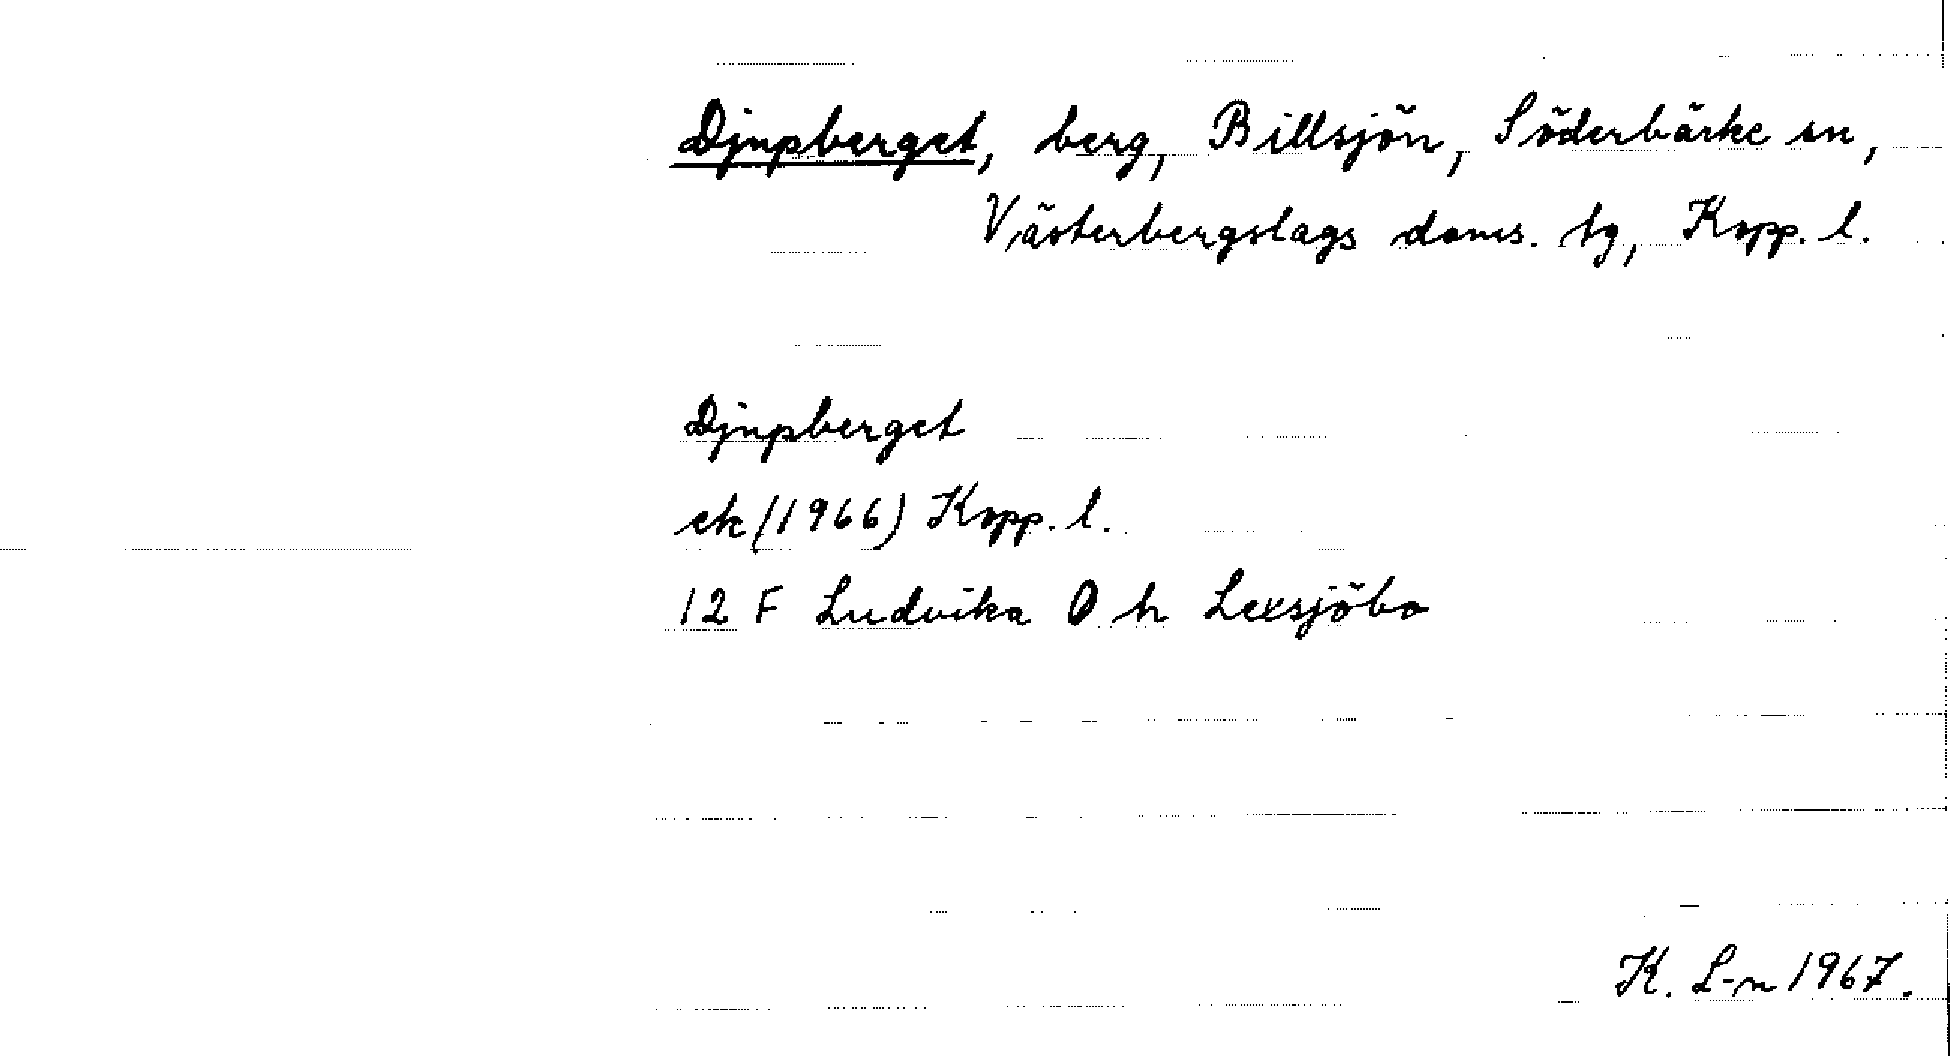 Djupberget, berg, Billsjön, Söderbärke sn,
Västerbergslags doms. tg, Kopp. l.
Djupberget
ek (1966) Kopp. l.
12 F Ludvika O h Lexsjöbo
K. L-n 1967.